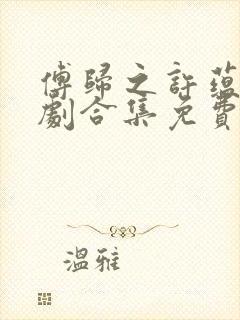 傅歸之許蘊
劇合集免費
溫雅